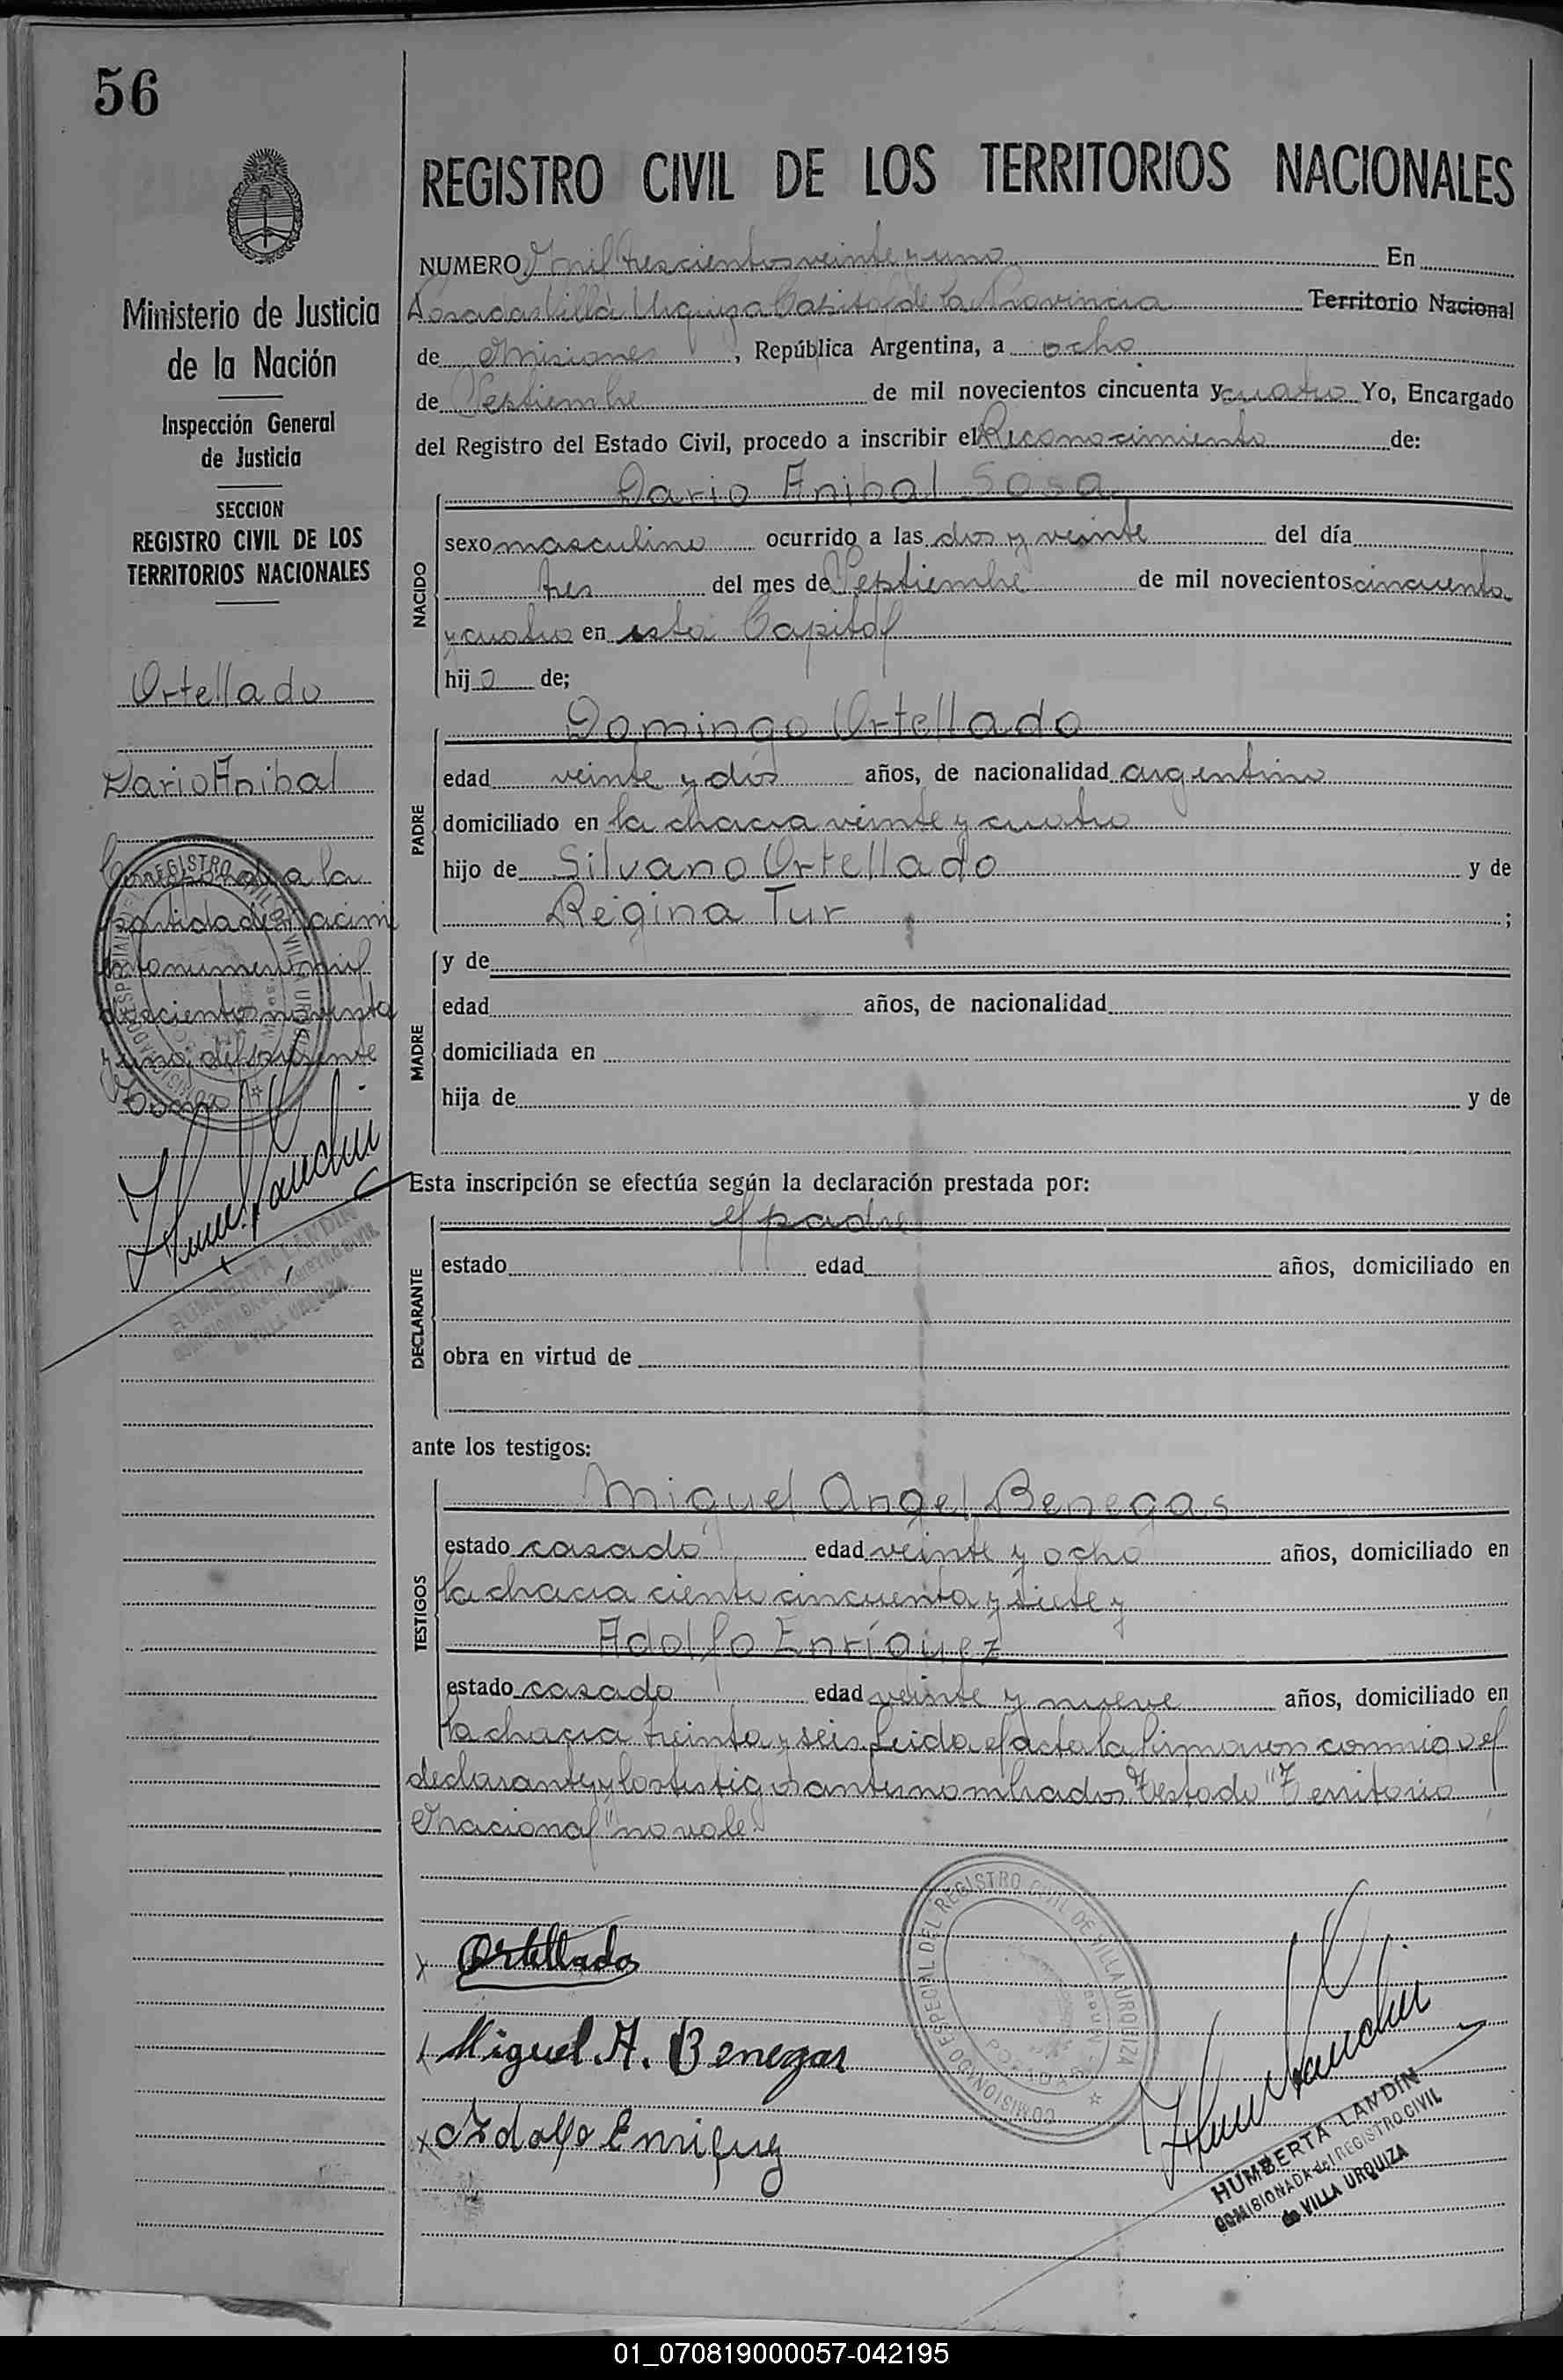 56
REGISTRO CIVIL DE LOS TERRITORIOS NACIONALES
Ministerio de Justicia
de la Nación
Inspección General
de Justicia
SECCION
REGISTRO CIVIL DE LOS
TERRITORIOS NACIONALES
Ortellado
Dario Anibal
Corresponde a la
partida de nacimi
ento numero mil
doscientos noventa
y uno del presente
Tomo
NUMERO mil trescientos veinte y uno En
Posadas Villa Urquiza Capital de la Provincia Territorio Nacional
de Misiones, República Argentina, a ocho
de Septiembre de mil novecientos cincuenta y cuatro Yo, Encargado
del Registro del Estado Civil, procedo a inscribir el Reconocimiento de:
Dario Anibal Sosa
NACIDO
sexo masculino ocurrido a las dos y veinte del día
tres del mes de Septiembre de mil novecientos cincuenta
y cuatro en esta Capital
hijo de;
Domingo Ortellado
PADRE
edad veinte y dos años, de nacionalidad argentino
domiciliado en la chacra veinte y cuatro
hijo de Silvano Ortellado y de
Regina Tur ;
MADRE
y de
edad años, de nacionalidad
domiciliada en
hija de y de
Esta inscripción se efectúa según la declaración prestada por:
el padre
DECLARANTE
estado edad años, domiciliado en
obra en virtud de
ante los testigos:
Miguel Angel Benegas
TESTIGOS
estado casado edad veinte y ocho años, domiciliado en
la chacra ciento cincuenta y siete y
Adolfo Enríquez
estado casado edad veinte y nueve años, domiciliado en
la chacra treinta y seis. Leida el acta la firmaron conmigo el
declarante y los testigos antes nombrados. Testado "Territorio
Nacional" no vale.
x Ortellado
x Miguel A. Benegas
x Adolfo Enriquez
COMISIONADO ESPECIAL DEL REGISTRO CIVIL DE VILLA URQUIZA
HUMBERTA LANDIN
COMISIONADA del REGISTRO CIVIL
de VILLA URQUIZA
01_070819000057-042195